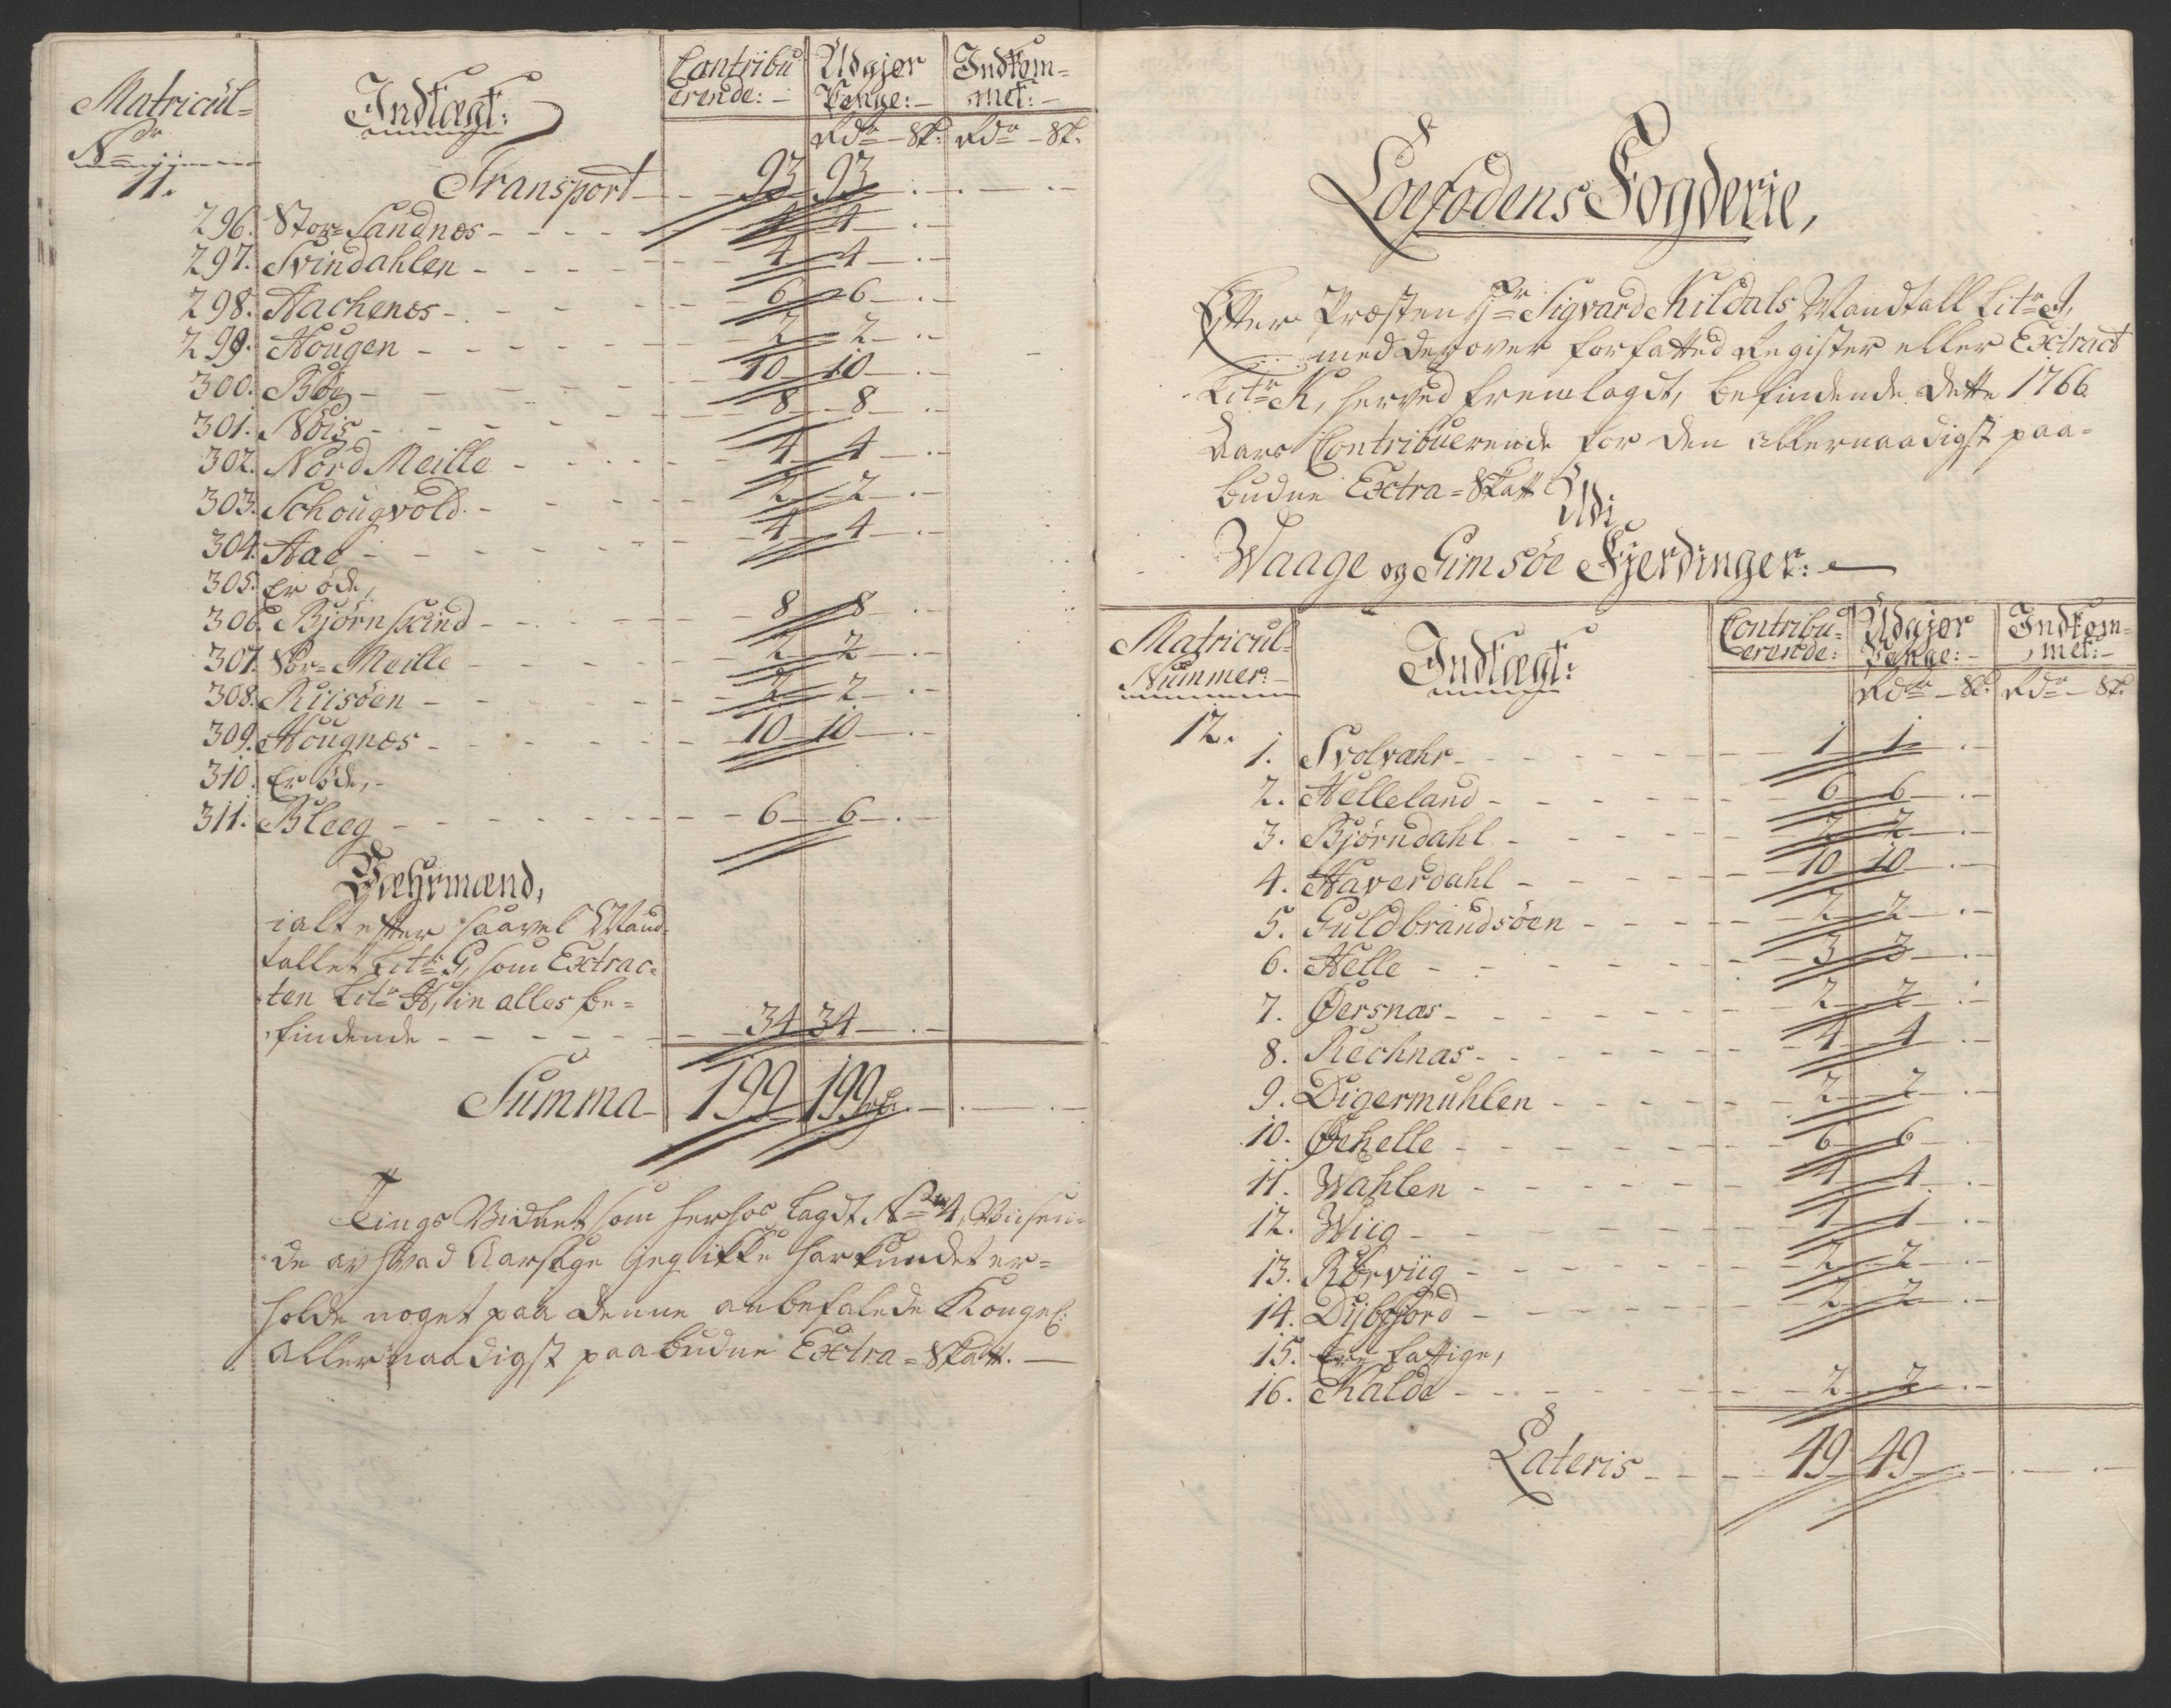 Matricul-
Ndr
Indtægt:
Contribu
erende:
Udgjør
Penge:
Indkom-
met:
Rdr - Sk. Rdr - Sk.
11.
Transport - 93 93 . -
296. Stor-Sandnæs - 4 4 . -
297. Svindahlen - 4 4 . -
298. Aachenæs - 6 6 . -
299. Hougen - 2 2 . -
300. Bøe - 10 10 . -
301. Nøis - 8 8 . -
302. Nord Meille - 4 4 . -
303. Schougvold - 2 2 . -
304. Aae - 4 4 . -
305. er öde,
306. Bjørnskind - 8 8 . -
307. Sør-Meille - 2 2 . -
308. Riisöen - 2 2 . -
309. Hougnæs - 10 10 . -
310. er öde,
311. Bleeg - 6 6 . -
Væhrmænd,
ialt efter saavel Mand-
tallet Litr G, som Extrac-
ten Litr H, in alles be-
findende - 34 34 . -
Summa - 199 199 rdr . -
Tings Vidnet som herhos lagdt Nr 4, Viisen-
de av hvad Aarsage jeg ikke har kundet er-
holde noget paa denne anbefalede Kongel:
allernaadigst paabudne Extra-Skatt. -
Loefodens Fogderie,
Efter Præsten Hr Sigvard Kildals Mandtall Litr I,
med derover forfatted Register eller Extract
Litr K, herved fremlagdt, befindende dette 1766
Aars Contribuerende for den allernaadigst paa-
budne Extra-Skatt
Udi
Waage og Gimsöe Fjerdinger: -
Matricul-
Nummer:
Indtægt:
Contribu-
erende:
Udgjør
Penge:
Indkom-
met:
Rdr - Sk. Rdr - Sk.
12.
1. Svolvahr - 1 1 . -
2. Helleland - 6 6 . -
3. Bjørndahl - 2 2 . -
4. Haverdahl - 10 10 . -
5. Guldbrandsöen - 2 2 . -
6. Helle - 3 3 . -
7. Øersnæs - 2 2 . -
8. Rechnæs - 4 4 . -
9. Digermuhlen - 2 2 . -
10. Øehelle - 6 6 . -
11. Wahlen - 4 4 . -
12. Wiig - 1 1 . -
13. Rørviig - 2 2 . -
14. Dijbfjord - 2 2 . -
15. ere fattige,
16. Kalde - 2 2 . -
Lateris - 49 49 . -